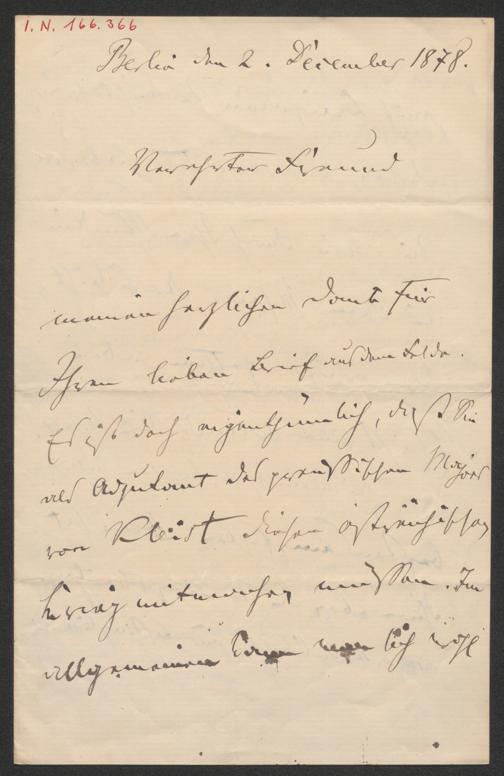 I. N. 166.366
Berlin den 2. December 1878.
Verehrter Freund
meinen herzlichen Dank für
Ihren lieben Brief aus dem Felde.
Es ist doch eigenthümlich, daß Sie
als Adjutant des preußischen Majors
von Kleist diesen östreichischen
Krieg mitmachen müssen. Im
allgemeinen kann man sich wohl